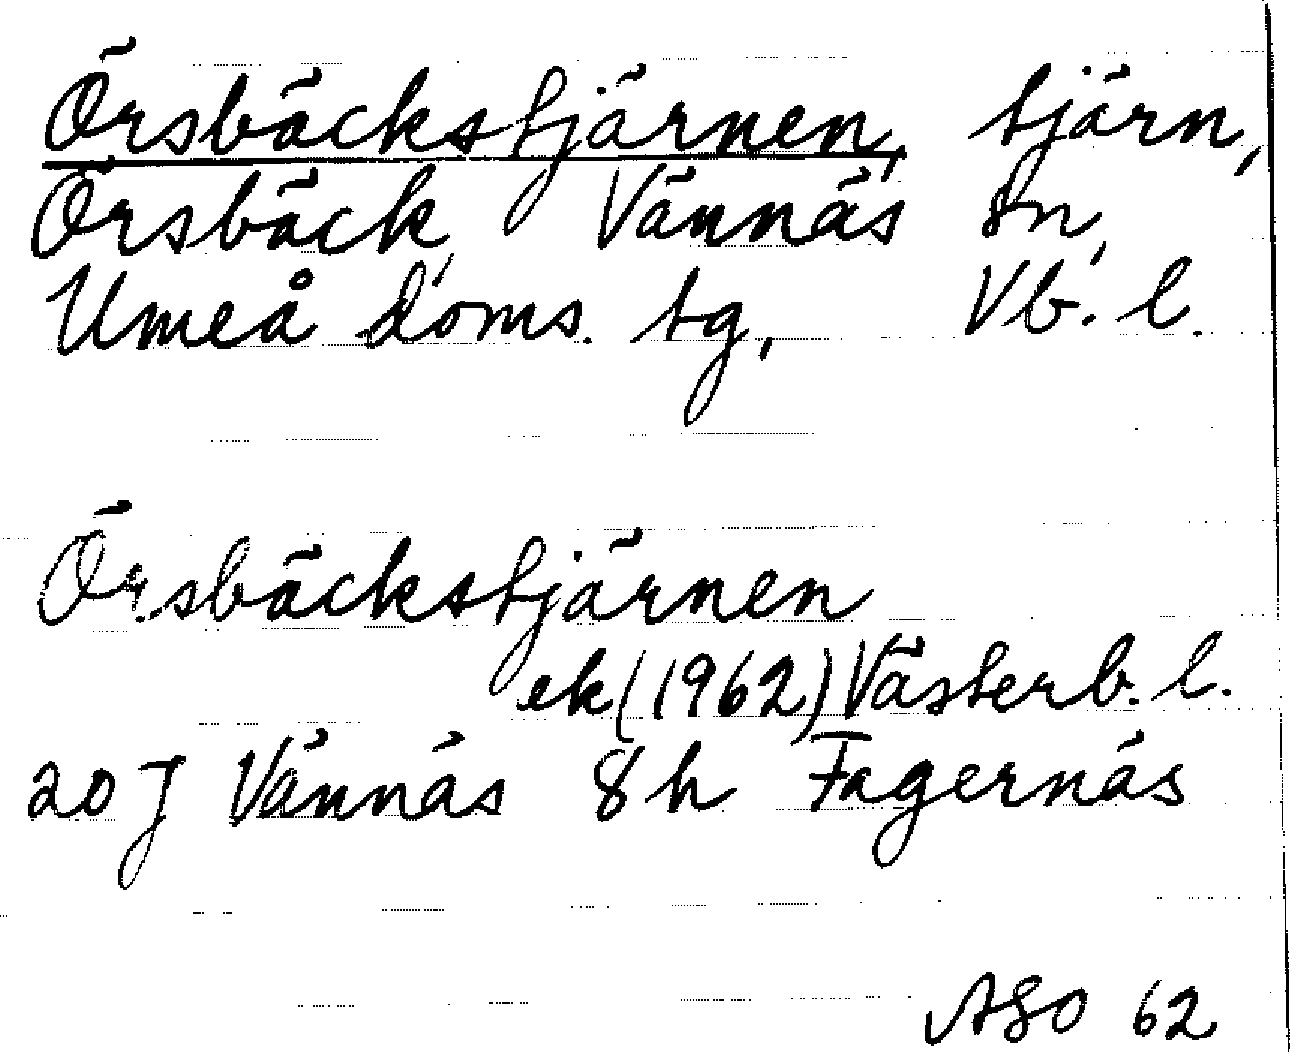 Örsbäckstjärnen, tjärn,
Örsbäck, Vännäs sn,
Umeå doms. tg, Vb. l.
Örsbäckstjärnen
ek (1962) Västerb. l.
20 J Vännäs 8 h Fagernäs
ASO 62